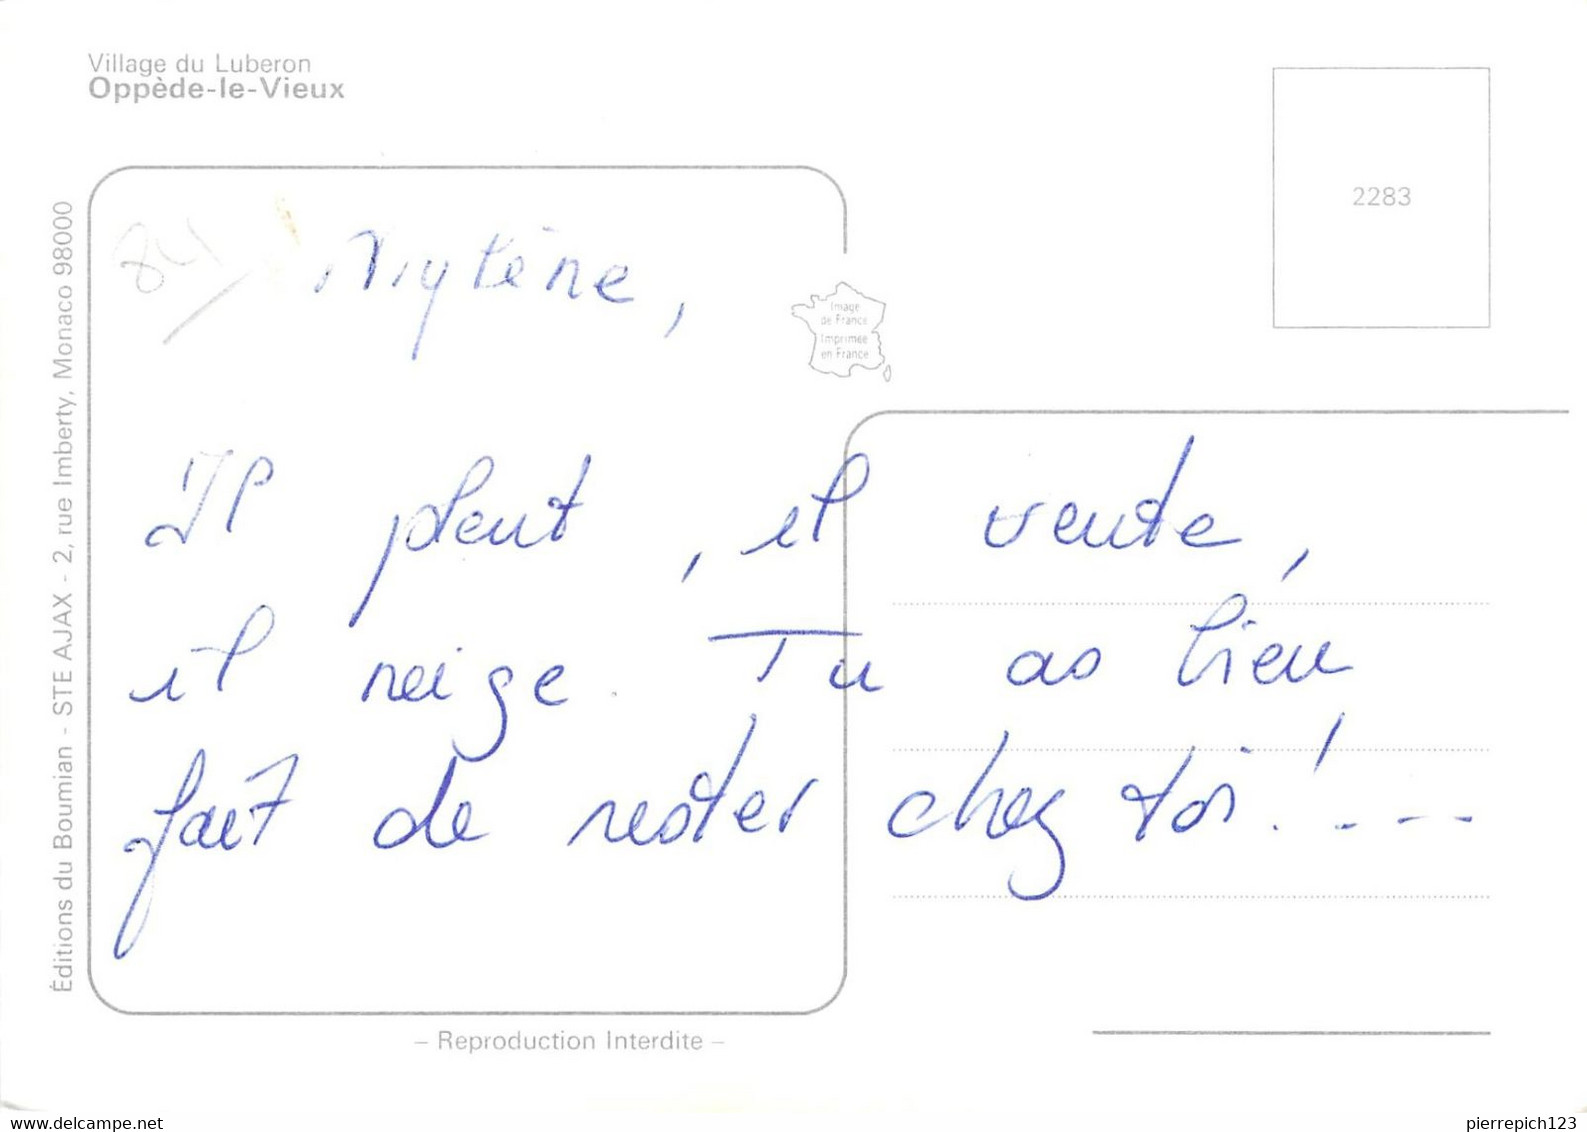 Village du Luberon
Oppède-le-Vieux
2283
84
Mylène,
Image
de France
Imprimée
en France
Il pleut, il vente,
il neige. Tu as bien
fait de rester chez toi!...---
Éditions du Boumian - STE AJAX - 2, rue Imberty, Monaco 98000
– Reproduction Interdite –
www.delcampe.net
pierrepich123